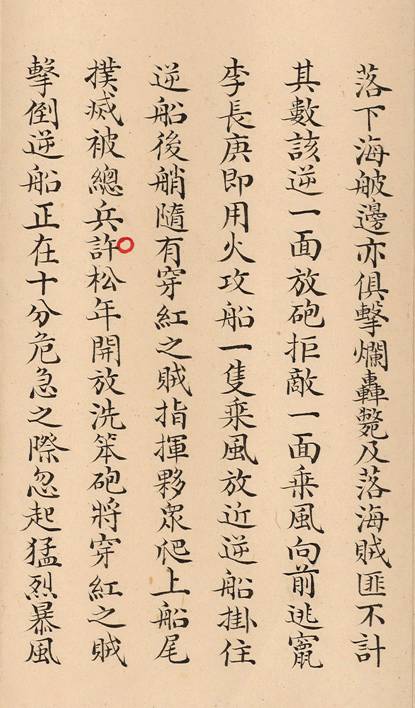 落下海舨邊亦俱擊爛轟斃及落海賊匪不計
其數該逆一面放砲拒敵一面乘風向前逃竄
李長庚即用火攻船一隻乘風放近逆船掛住
逆船後艄隨有穿紅之賊指揮夥眾爬上船尾
撲滅被總兵許松年開放洗笨砲將穿紅之賊
擊倒逆船正在十分危急之際忽起猛烈暴風